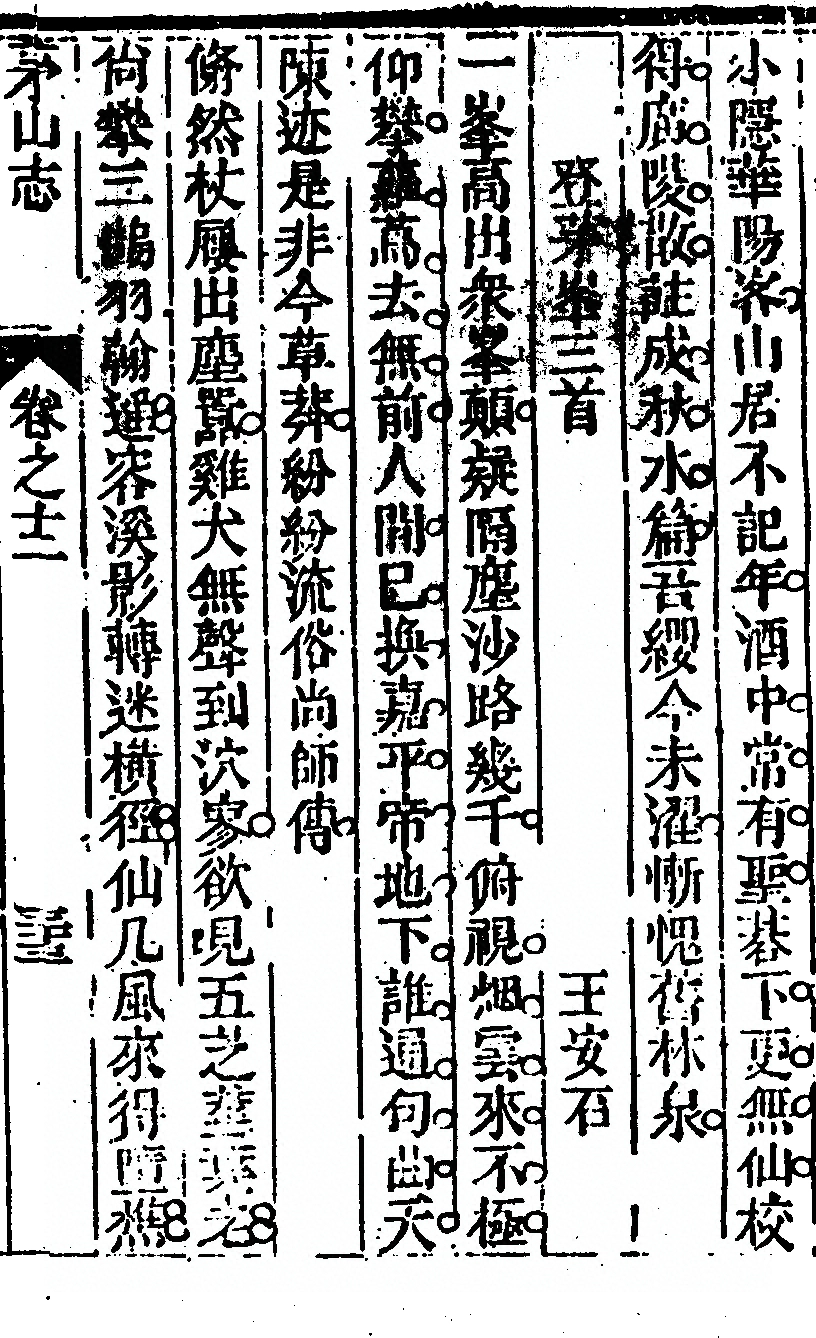 小隱華陽客山居不記年酒中常有聖碁下更無仙校
得廣陵散註成秋水篇吾纓今未濯慚愧舊林泉
登茅峯三首　王安石
一峯高出衆峯顛疑隔塵沙路幾千俯視烟雲來不極
仰攀蘿蔦去無前人間已換嘉平帝地下誰通句曲天
陳迹是非今草莽紛紛流俗尚師傳
翛然杖屨出塵囂雞犬無聲到泬寥欲見五芝莖葉老
尚攀三鶴羽翰遥容溪影轉迷橫徑仙几風來得墮樵
茅山志　卷之十二